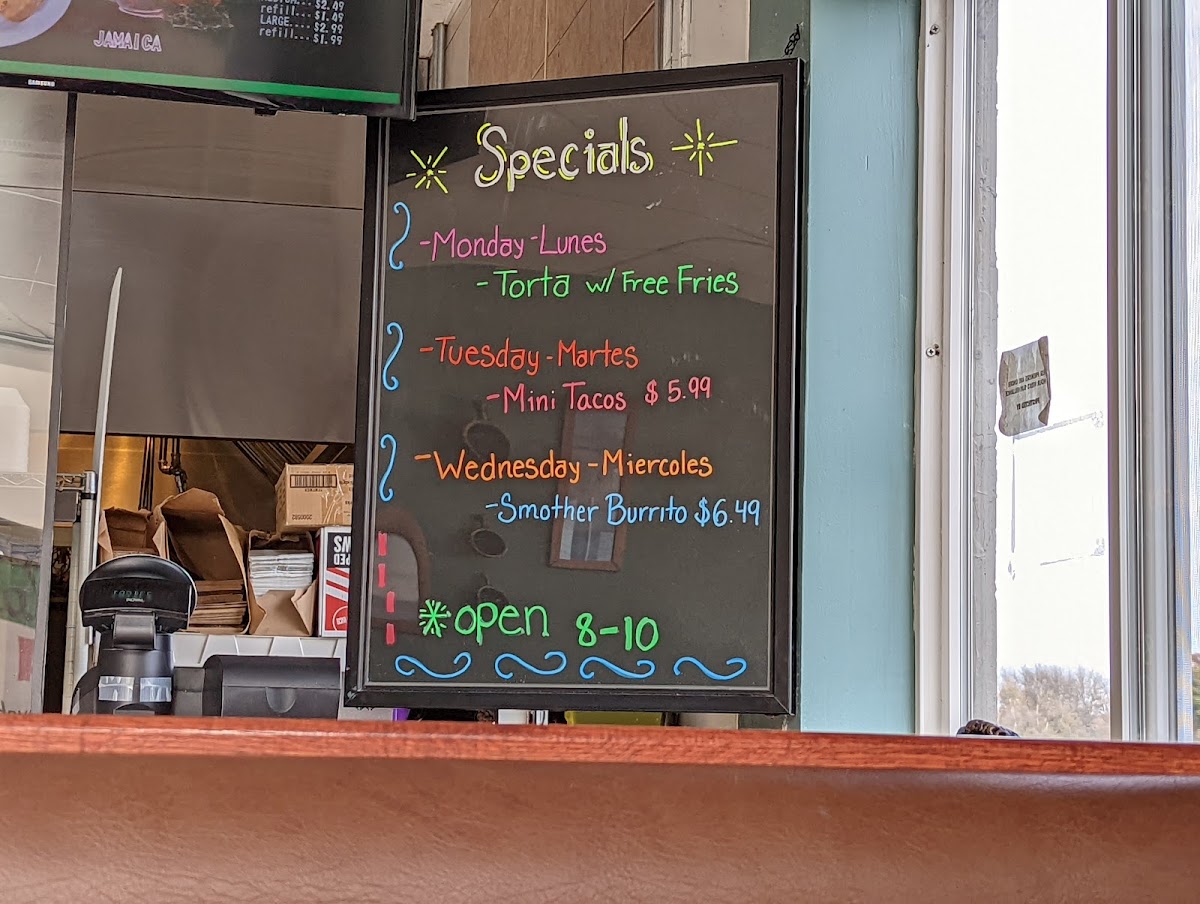 $2.49
refill... $1.49
LARGE.... $2.99
refill... $1.99
JAMAICA
SAMSUNG
Specials
-Monday-Lunes
-Torta w/ Free Fries
-Tuesday-Martes
-Mini Tacos $5.99
-Wednesday-Miercoles
-Smother Burrito $6.49
*open 8-10